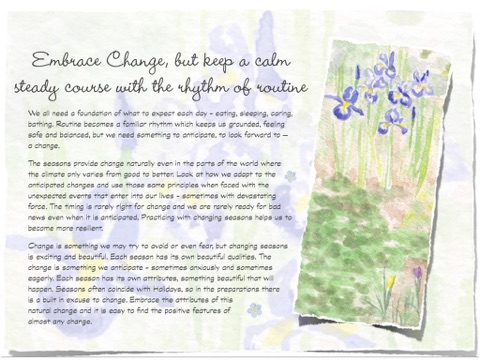 Embrace Change, but keep a calm
steady course with the rhythm of routine
We all need a foundation of what to expect each day - eating, sleeping, caring,
bathing. Routine becomes a familiar rhythm which keeps us grounded, feeling
safe and balanced, but we need something to anticipate, to look forward to –
a change.
The seasons provide change naturally even in the parts of the world where
the climate only varies from good to better. Look at how we adapt to the
anticipated changes and use those same principles when faced with the
unexpected events that enter into our lives - sometimes with devastating
force. The timing is rarely right for change and we are rarely ready for bad
news even when it is anticipated. Practicing with changing seasons helps us to
become more resilient.
Change is something we may try to avoid or even fear, but changing seasons
is exciting and beautiful. Each season has its own beautiful qualities. The
change is something we anticipate - sometimes anxiously and sometimes
eagerly. Each season has its own attributes, something beautiful that will
happen. Seasons often coincide with Holidays, so in the preparations there
is a built in excuse to change. Embrace the attributes of this
natural change and it is easy to find the positive features of
almost any change.